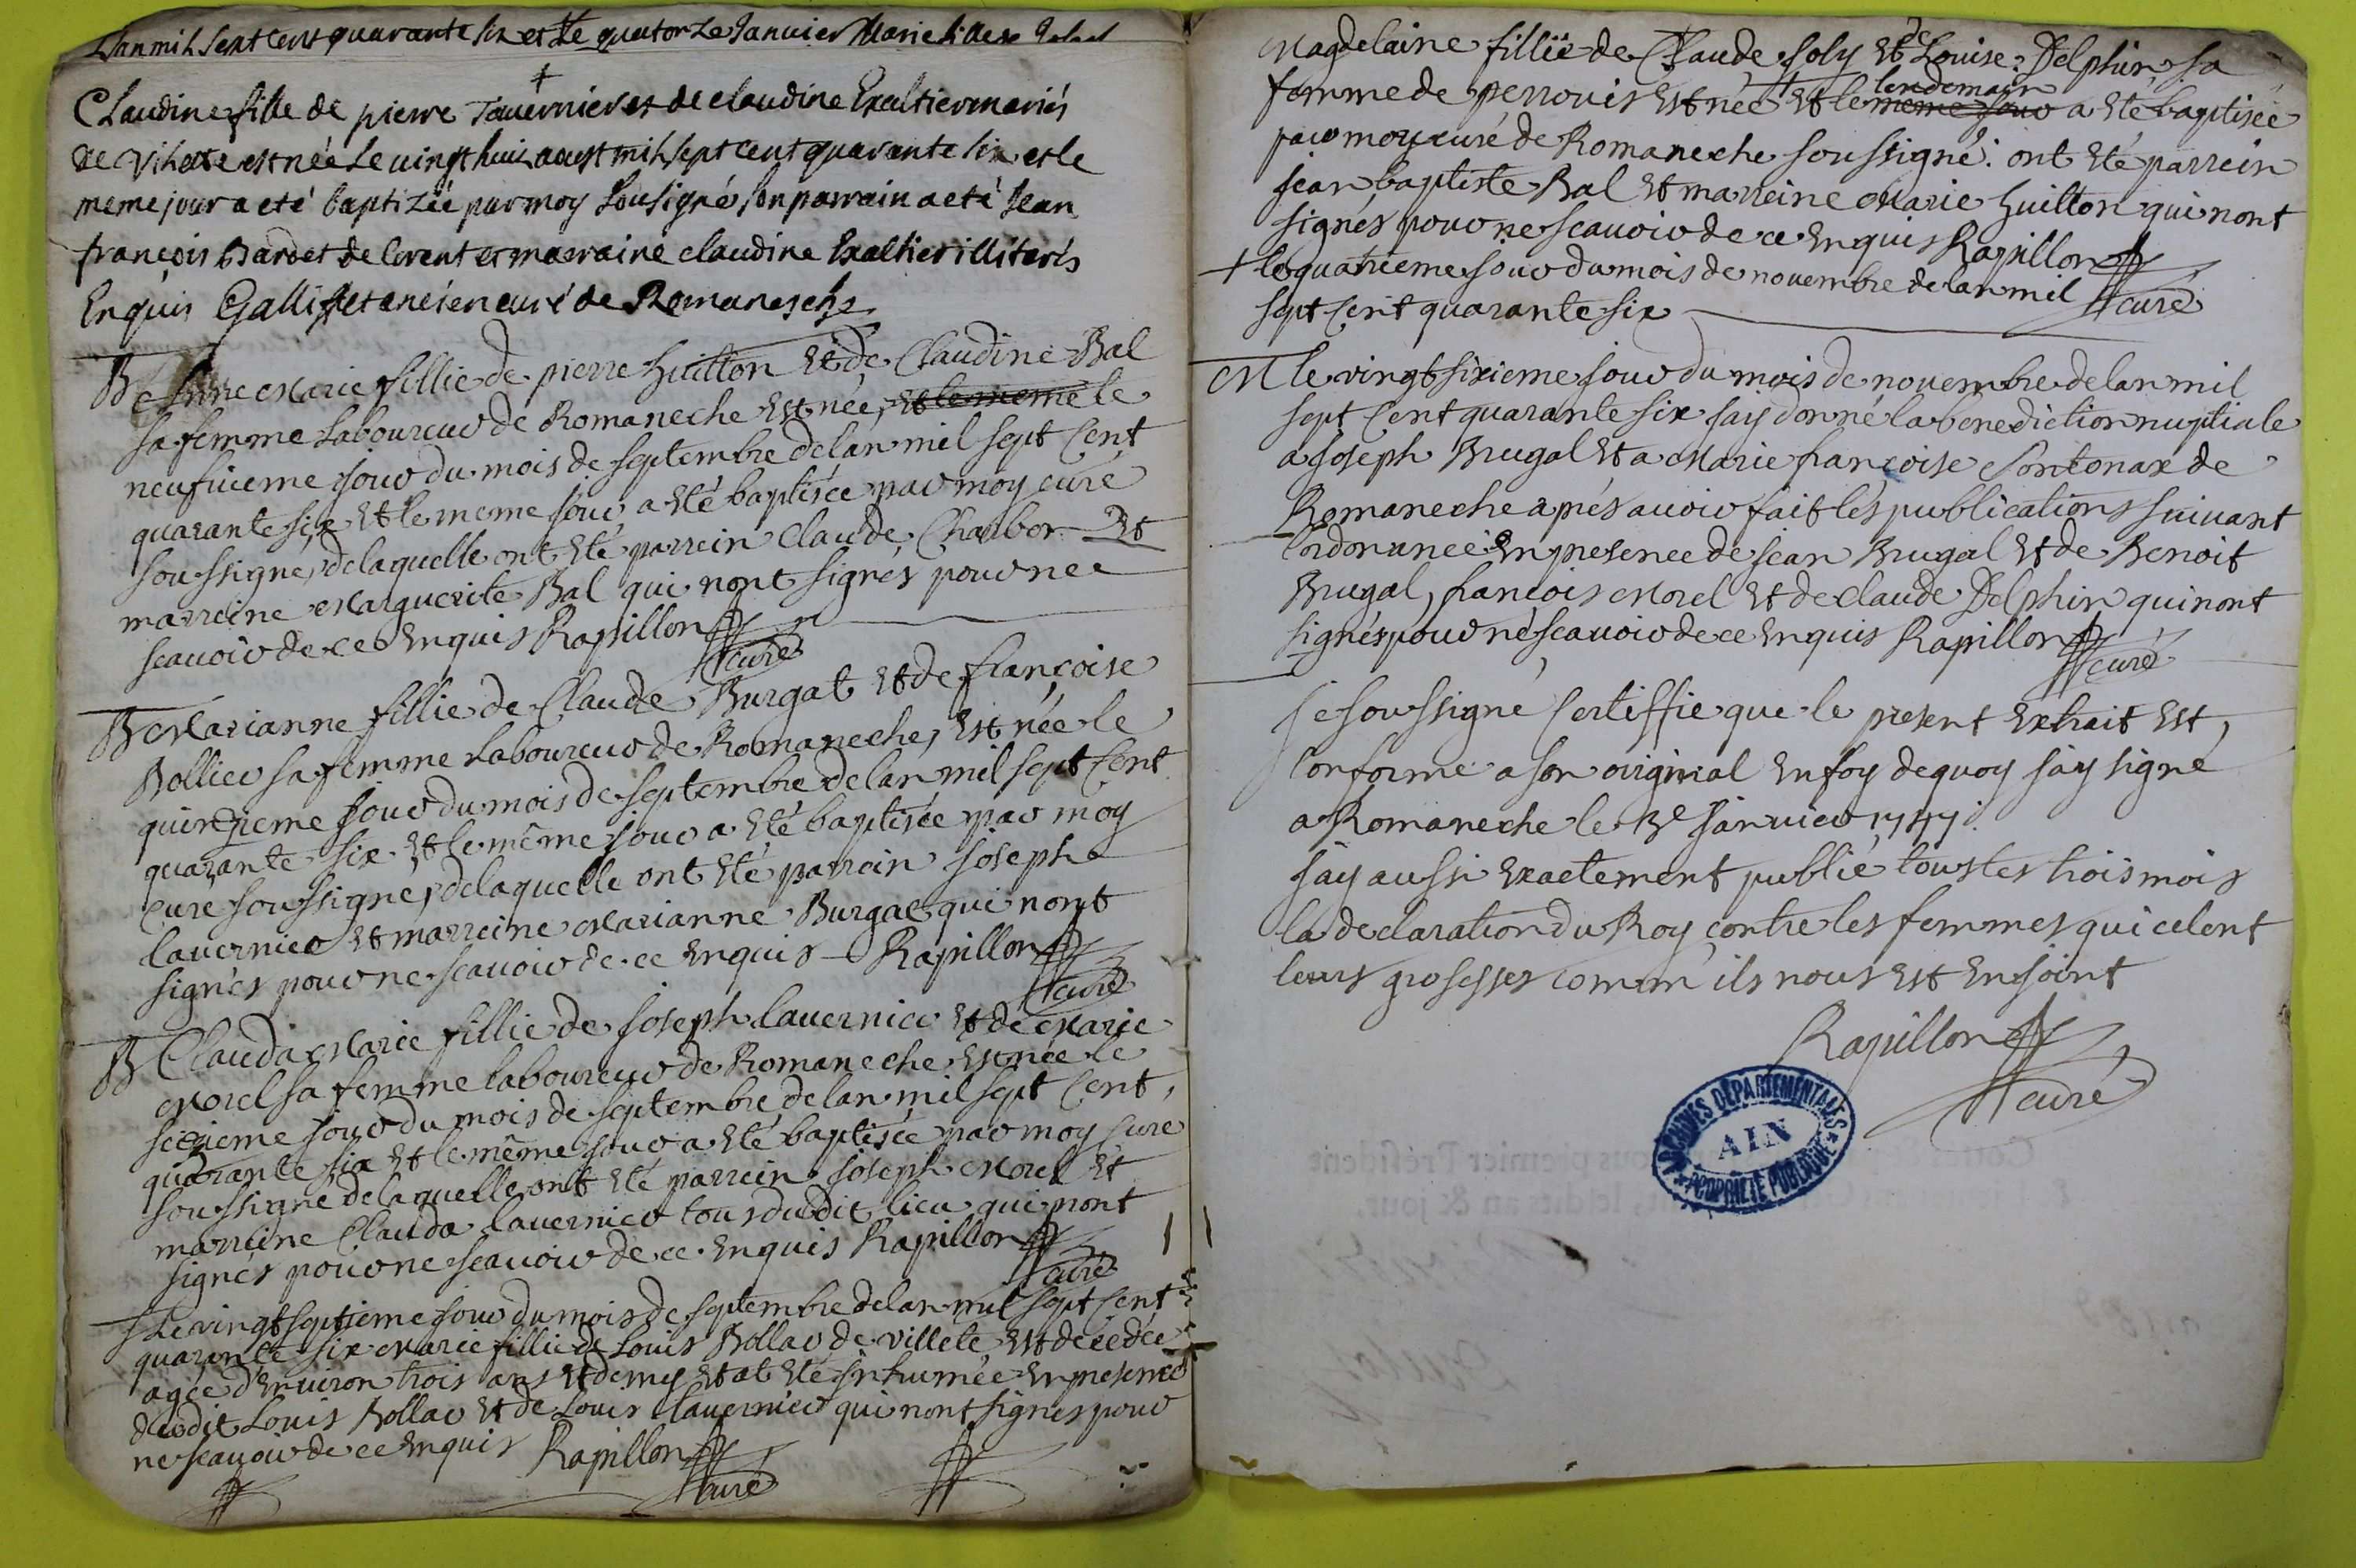 Lan mil sept cent quarante six et le quatorze Janvier Marie
Claudine fille de pierre Tavernier et de claudine Exaltier mariés
de Villette est née Le vingt huit aoust mil sept cent quarante six et le
meme jour a eté baptizée par moy Sousigné son parrain a eté Jean
françois Bardet de lorent et marraine claudine Exaltier illiterés
Enquis Galliffet ancien curé de Romanesche
B Anne Marie fillie de pierre huitton Et de Claudine Bal
sa femme Laboureur de Romaneche Est née, Et le meme le
neufuieme jour du mois de septembre de lan mil sept Cent
quarante six Et le meme jour a Eté baptisée par moy curé
soussigné, de laquelle ont Eté parrein Claude Charbon Et
marreine Marguerite Bal qui nont signés pour ne
scauoir de ce Enquis Rapillon
curé
B Marianne fillie de Claude Burgat Et de françoise
Bollier sa femme Laboureur de Romaneche, Est née le
quinzieme jour du mois de septembre de lan mil sept Cent
quarante six Et le même jour a Eté baptisée par moy
Curé soussigné, de laquelle ont Eté parrein joseph
lauernier Et marreine Marianne Burgat qui nont
signés pour ne scauoir de ce Enquis Rapillon
curé
B Clauda Marie fillie de joseph lauernier Et de Marie
Morel sa femme laboureur de Romaneche Est née le
seizieme jour du mois de septembre de lan mil sept Cent,
quarante six Et le même jour a Eté baptisée par moy Curé
soussigné de laquelle ont Eté parrein joseph Morel Et
marreine Clauda lauernier tous du dit lieu qui nont
signés pour ne scauoir de ce Enquis Rapillon
curé
Le vingt septieme jour du mois de septembre de lan mil sept Cent
quarante six Marie fillie de Louis Bollar de villete Est decedée
agée d'Enuiron trois ans Et demy Et at Eté inhumée En presence
dudit Louis Bollar Et de Louis lauernier qui nont signés pour
ne scauoir de ce Enquis Rapillon
curé
Magdelaine fillie de Claude joly Et de Louise Delphin sa
femme de perrouis Est née + Et le meme jour lendemain a Eté baptisée
par moy curé de Romaneche soussigné: ont Eté parrein
jean baptiste Bal Et marreine Marie huitton qui nont
signés pour ne scauoir de ce Enquis Rapillon
curé
+ le quatrieme jour du mois de nouembre de lan mil
sept Cent quarante six
M le vingt sixieme jour du mois de nouembre de lan mil
sept Cent quarante six jay donné la benediction nuptiale
a joseph Brugal Et a Marie françoise Sontonax de
Romaneche aprés auoir fait les publications suiuant
lordonance En presence de jean Brugal Et de Benoit
Brugal, francois Morel Et de claude Delphin qui nont
signés pour ne scauoir de ce Enquis Rapillon
curé
je soussigné Certiffie que le present Extrait Est,
Conforme a son original En foy de quoy jay signé
a Romaneche le 3e januier 1747.
jay aussi Exactement publié tous les trois mois
la declaration du Roy contre les femmes qui celent
leurs grosesses comm' ils nous Est Enjoint
Rapillon
curé
ARCHIVES DÉPARTEMENTALES
AIN
PROPRIÉTÉ PUBLIQUE